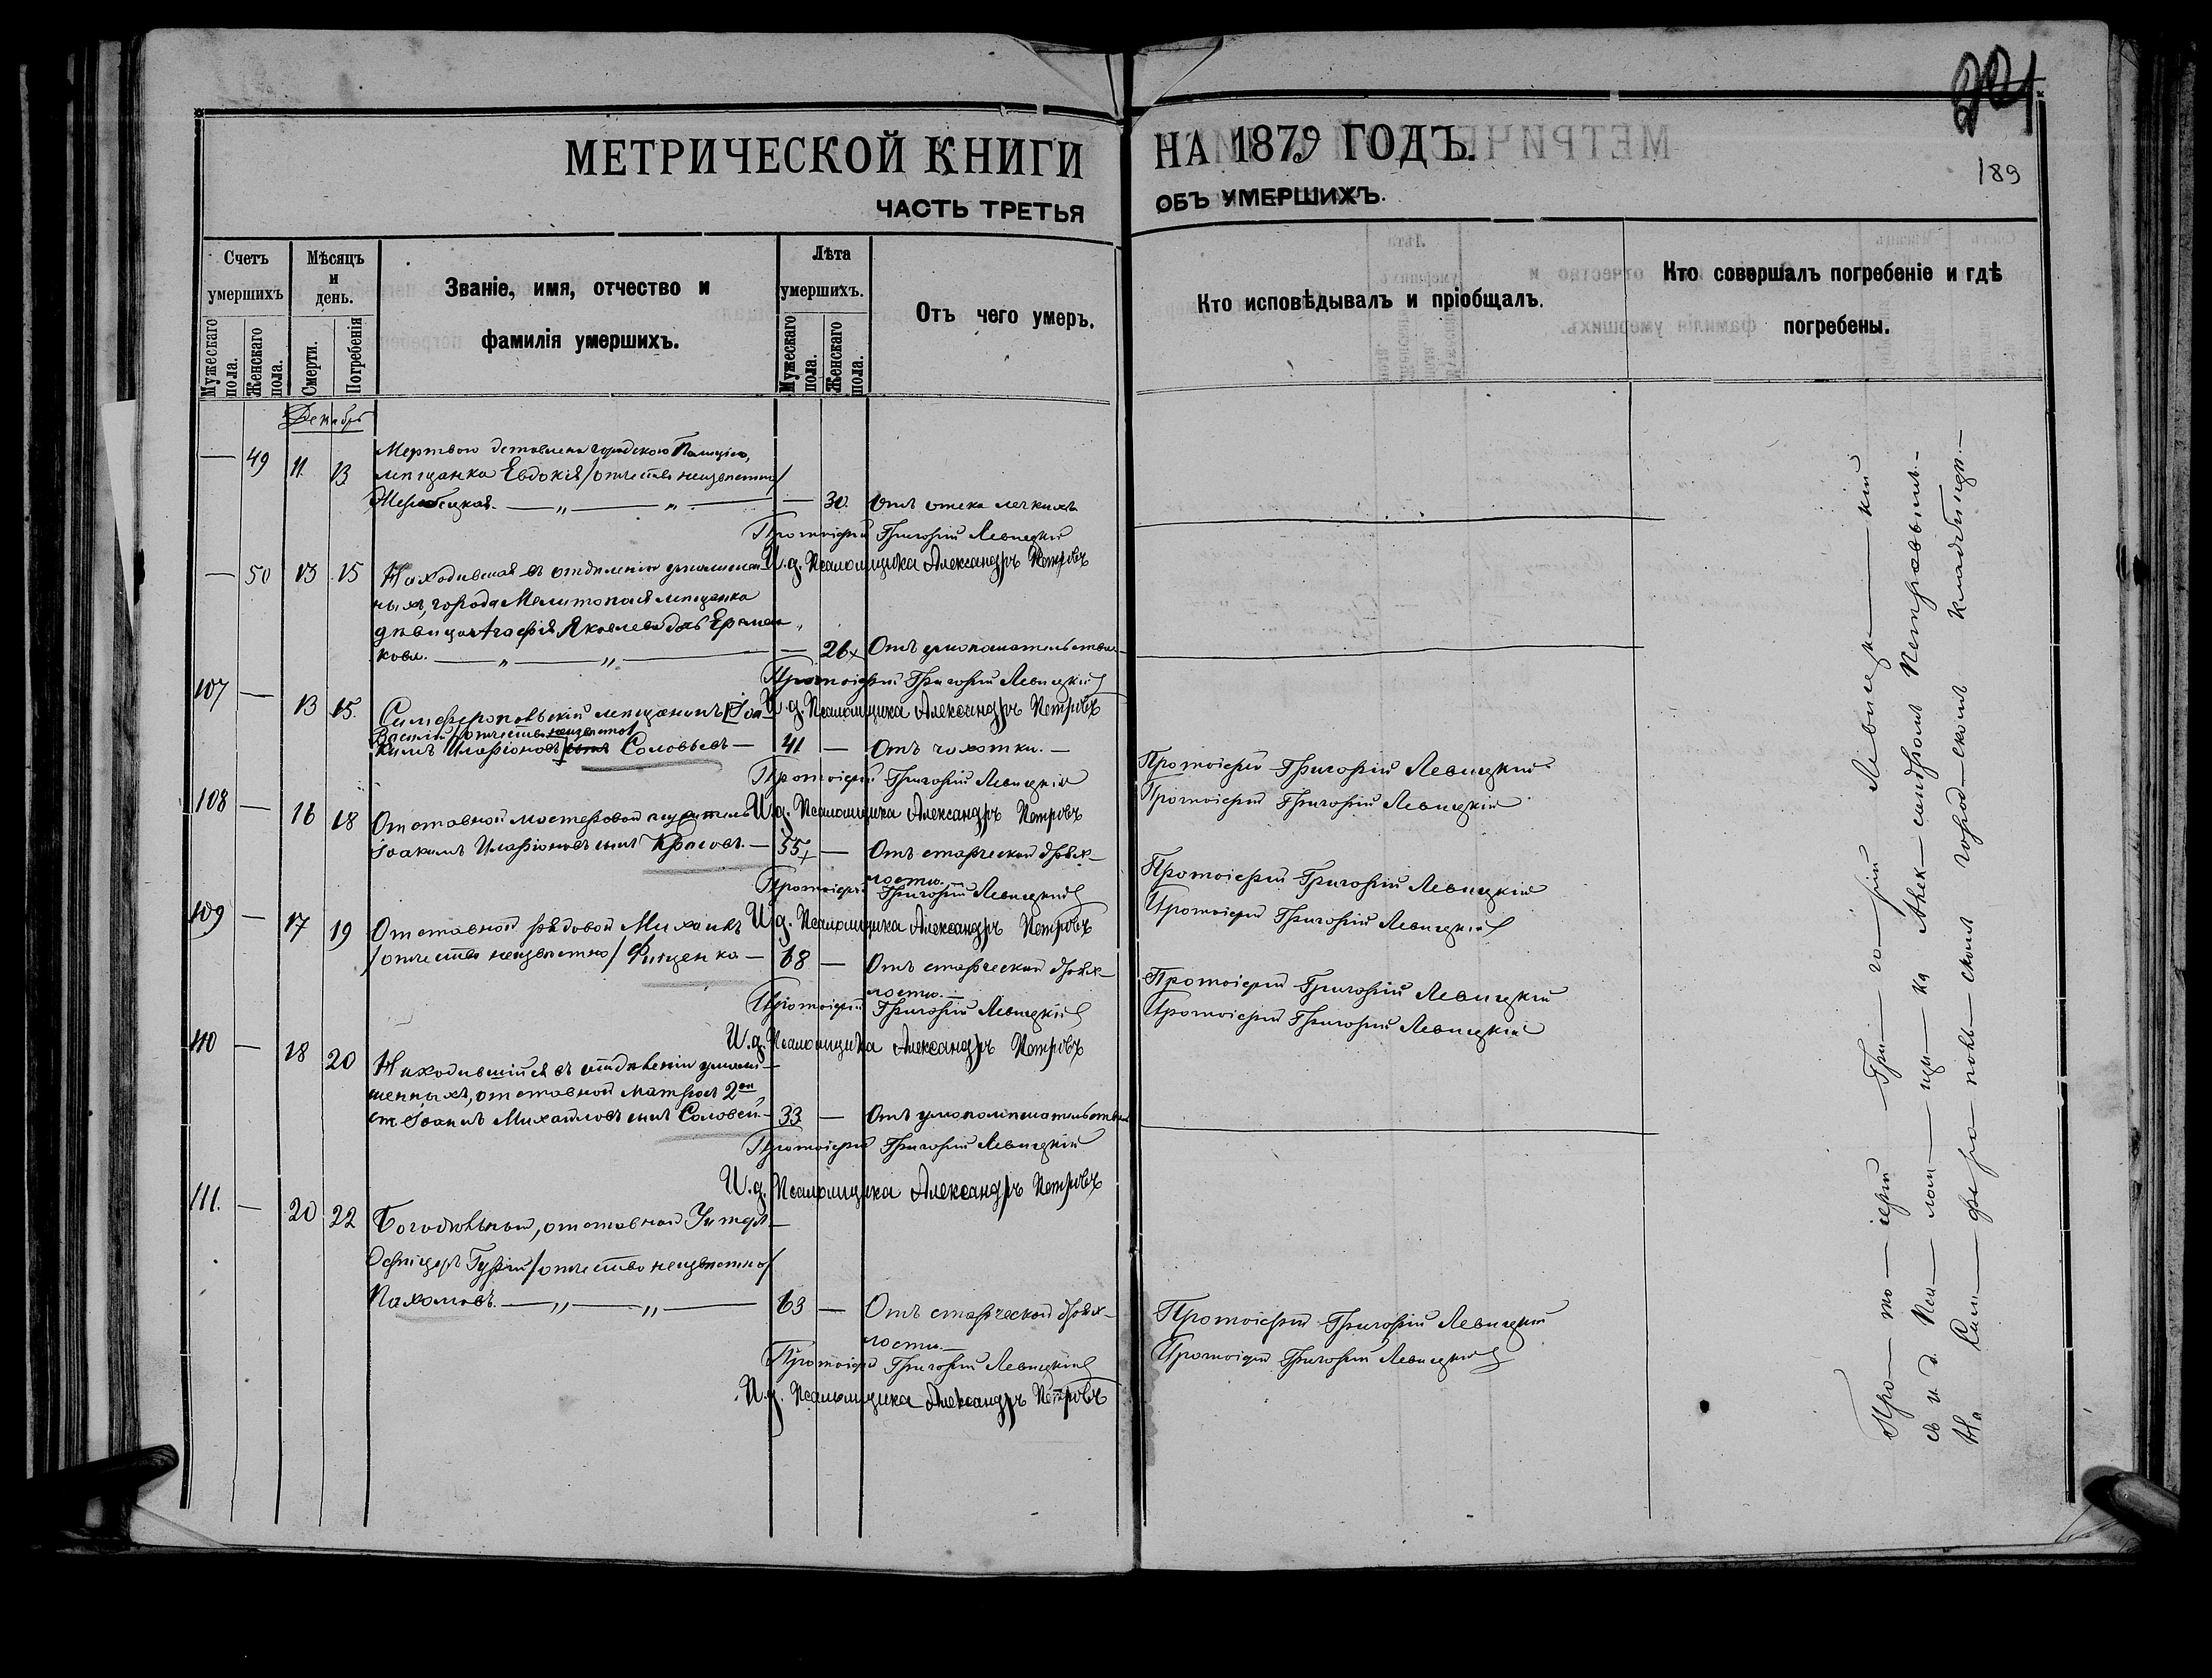 221
189
МЕТРИЧЕСКОЙ КНИГИ НА 1879 ГОДЪ.
ЧАСТЬ ТРЕТЬЯ ОБЪ УМЕРШИХЪ.
Счетъ умершихъ
Мужескаго пола.
Женскаго пола.
Мѣсяцъ и день.
Смерти.
Погребенія
Званіе, имя, отчество и
фамилія умершихъ.
Лѣта умершихъ.
Мужескаго пола.
Женскаго пола.
Отъ чего умеръ.
Кто исповѣдывалъ и пріобщалъ.
Кто совершалъ погребеніе и гдѣ
погребены.
Декабрь
— 49 11. 13 Мертвою доставлена городскою Полиціею,
мѣщанка Евдокія /отчество неизвѣстно/
— 30. Отъ отека легкихъ
Протоіерей Григорій Левицкій
И.д. Псаломщика Александръ Петровъ
— 50 13 15 Находившаяся въ отдѣленіи умалишен-
ныхъ, города Мелитополя мѣщанка
дѣвица Агафія Яковлева дочь Ермо
кова. — „ — „ — — 26 Отъ умопомѣшательства
Протоіерей Григорій Левицкій
И.д. Псаломщика Александръ Петровъ
107 — 13 15. Симферопольскій мѣщанинъ [Іоа
Василій /отчество неизвѣстно/
кимъ Иларіоновъ сынъ] Соловьевъ — 41 — Отъ чахотки. —
Протоіерей Григорій Левицкій
И.д. Псаломщика Александръ Петровъ
Протоіерей Григорій Левицкій
Протоіерей Григорій Левицкій
108 — 16 18 Отставной мастеровой
Іоакимъ Иларіоновъ сынъ Красовъ. — 55 — Отъ старческой дрях-
лости.
Протоіерей Григорій Левицкій
И.д. Псаломщика Александръ Петровъ
Протоіерей Григорій Левицкій
Протоіерей Григорій Левицкій
109 — 17 19 Отставной рядовой Михаилъ
/отчество неизвѣстно/ Фищенко — 68 — Отъ старческой дрях-
лости. —
Протоіерей Григорій Левицкій
И.д. Псаломщика Александръ Петровъ
Протоіерей Григорій Левицкій
Протоіерей Григорій Левицкій
110 — 18 20 Находившійся въ отдѣленіи умали-
шенныхъ, отставной матросъ 2ой
ст. Іоаннъ Михайловъ сынъ Соловей. — 33 — Отъ умопомѣшательства
Протоіерей Григорій Левицкій
И.д. Псаломщика Александръ Петровъ
111. — 20 22 Богодѣльный, отставной Унтеръ —
Офицеръ Гурій /отчество неизвѣстно/
Пахомовъ. — „ — „ — 63 — Отъ старческой дрях-
лости. —
Протоіерей Григорій Левицкій
И.д. Псаломщика Александръ Петровъ
Протоіерей Григорій Левицкій
Протоіерей Григорій Левицкій
Про — то — іерей Гри — го — рій Левиц — кій
съ и. д. Пса — лом — щи — ка Алек — сандромъ Петровымъ. —
На Сим — феро — поль — скомъ город — скомъ кладбищѣ. —